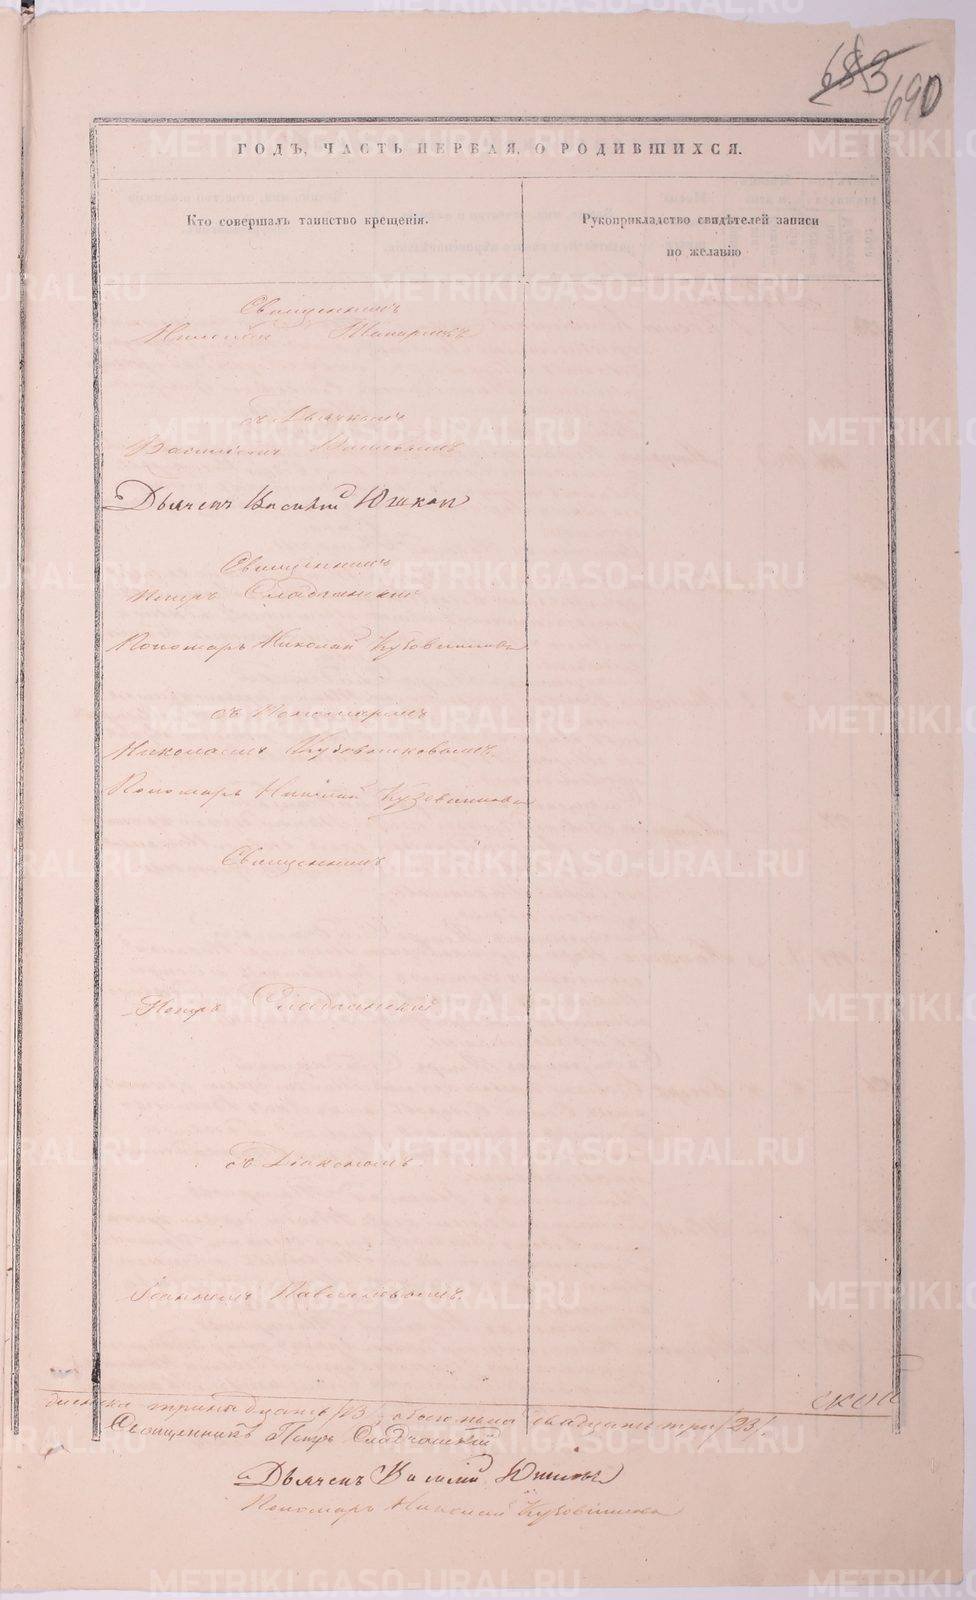 683
690
ГОДЪ, ЧАСТЬ ПЕРВАЯ, О РОДИВШИХСЯ.
Кто совершалъ таинство крещенія.
Рукоприкладство свидѣтелей записи
по желанію
Священникъ
съ Дьячкомъ
Дьячекъ Василій Юшков
Священникъ
Петръ Сладчанскій
Пономарь Николай Кузовников
съ Пономаремъ
Николаемъ Кузовниковымъ.
Пономарь Николай Кузовников
Священникъ
Петръ Сладчанскій
съ Діакономъ
Іоанномъ
тринадцать /13/, обоего пола двадцать три /23/.
Священникъ Петръ Сладчанскій
Дьячекъ Василій Юшков
Пономарь Николай Кузовников
METRIKI.GASO-URAL.RU